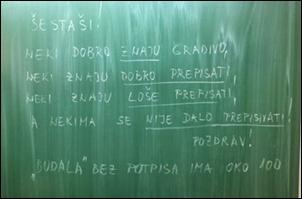 ŠESTAŠI.
NEKI DOBRO ZNAJU GRADIVO,
NEKI ZNAJU DOBRO PREPISATI,
NEKI ZNAJU LOŠE PREPISATI,
A NEKIMA SE NIJE DALO PREPISIVATI!
POZDRAV!
„BUDALA" BEZ POTPISA IMA OKO 100